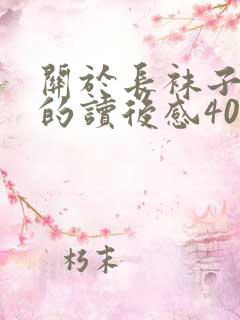 關於長袜子
的讀後感40
朽末